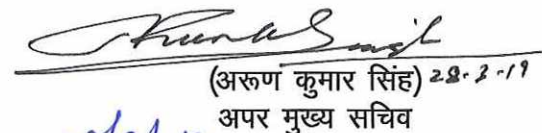 (अरूण कुमार सिंह) 28.3.19
अपर मुख्य सचिव